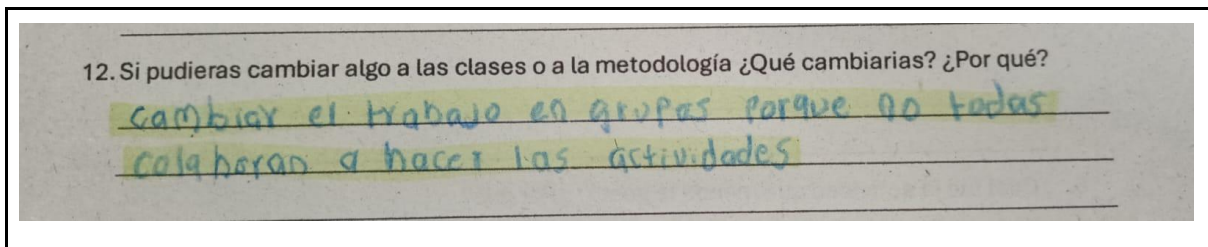 12. Si pudieras cambiar algo a las clases o a la metodología ¿Qué cambiarias? ¿Por qué?
cambiar el trabajo en grupos porque no todos
colaboran a hacer las actividades